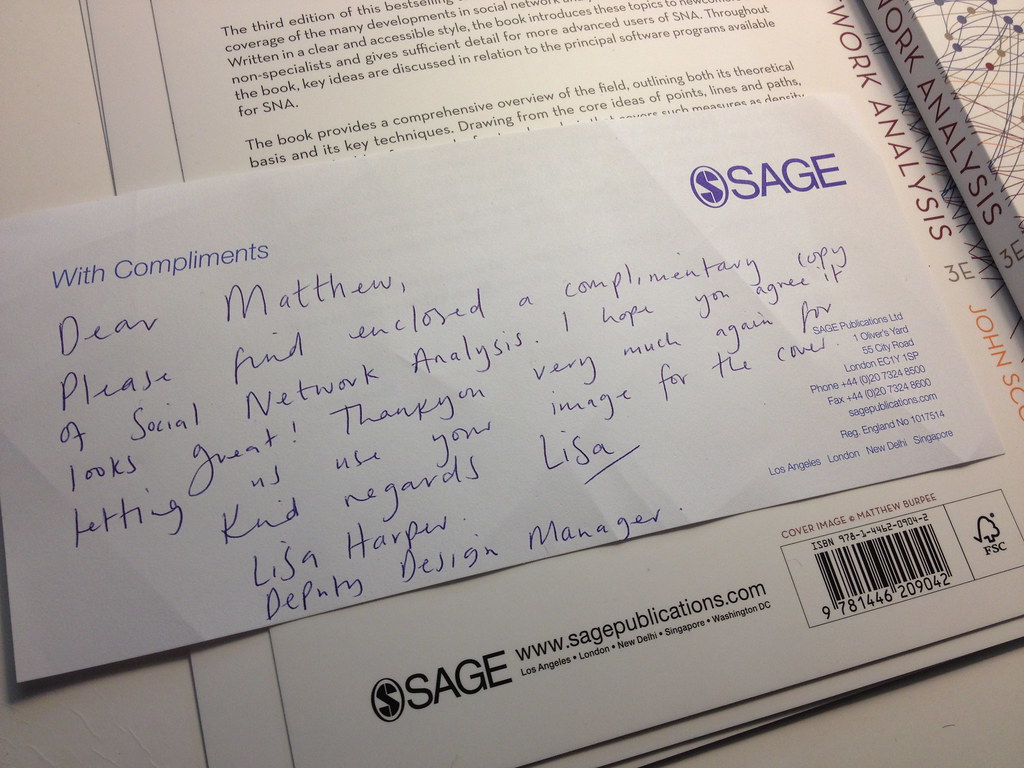 The third edition of this bestselling
coverage of the many developments in social network
Written in a clear and accessible style, the book introduces these topics to
non-specialists and gives sufficient detail for more advanced users of SNA. Throughout
the book, key ideas are discussed in relation to the principal software programs available
for SNA.
The book provides a comprehensive overview of the field, outlining both its theoretical
basis and its key techniques. Drawing from the core ideas of points, lines and paths,
such measures as density,
WORK ANALYSIS
3E
JOHN SCO
WORK ANALYSIS
3E
SAGE
With Compliments
Dear Matthew,
Please find enclosed a complimentary copy
of Social Network Analysis. I hope you agree it
looks great! Thankyou very much again for
letting us use your image for the cover.
Kind regards Lisa
Lisa Harper.
Deputy Design Manager.
SAGE Publications Ltd
1 Oliver's Yard
55 City Road
London EC1Y 1SP
Phone +44 (0)20 7324 8500
Fax +44 (0)20 7324 8600
sagepublications.com
Reg. England No 1017514
Los Angeles London New Delhi Singapore
COVER IMAGE © MATTHEW BURPEE
ISBN 978-1-4462-0904-2
9 781446 209042
FSC
SAGE www.sagepublications.com
Los Angeles • London • New Delhi • Singapore • Washington DC